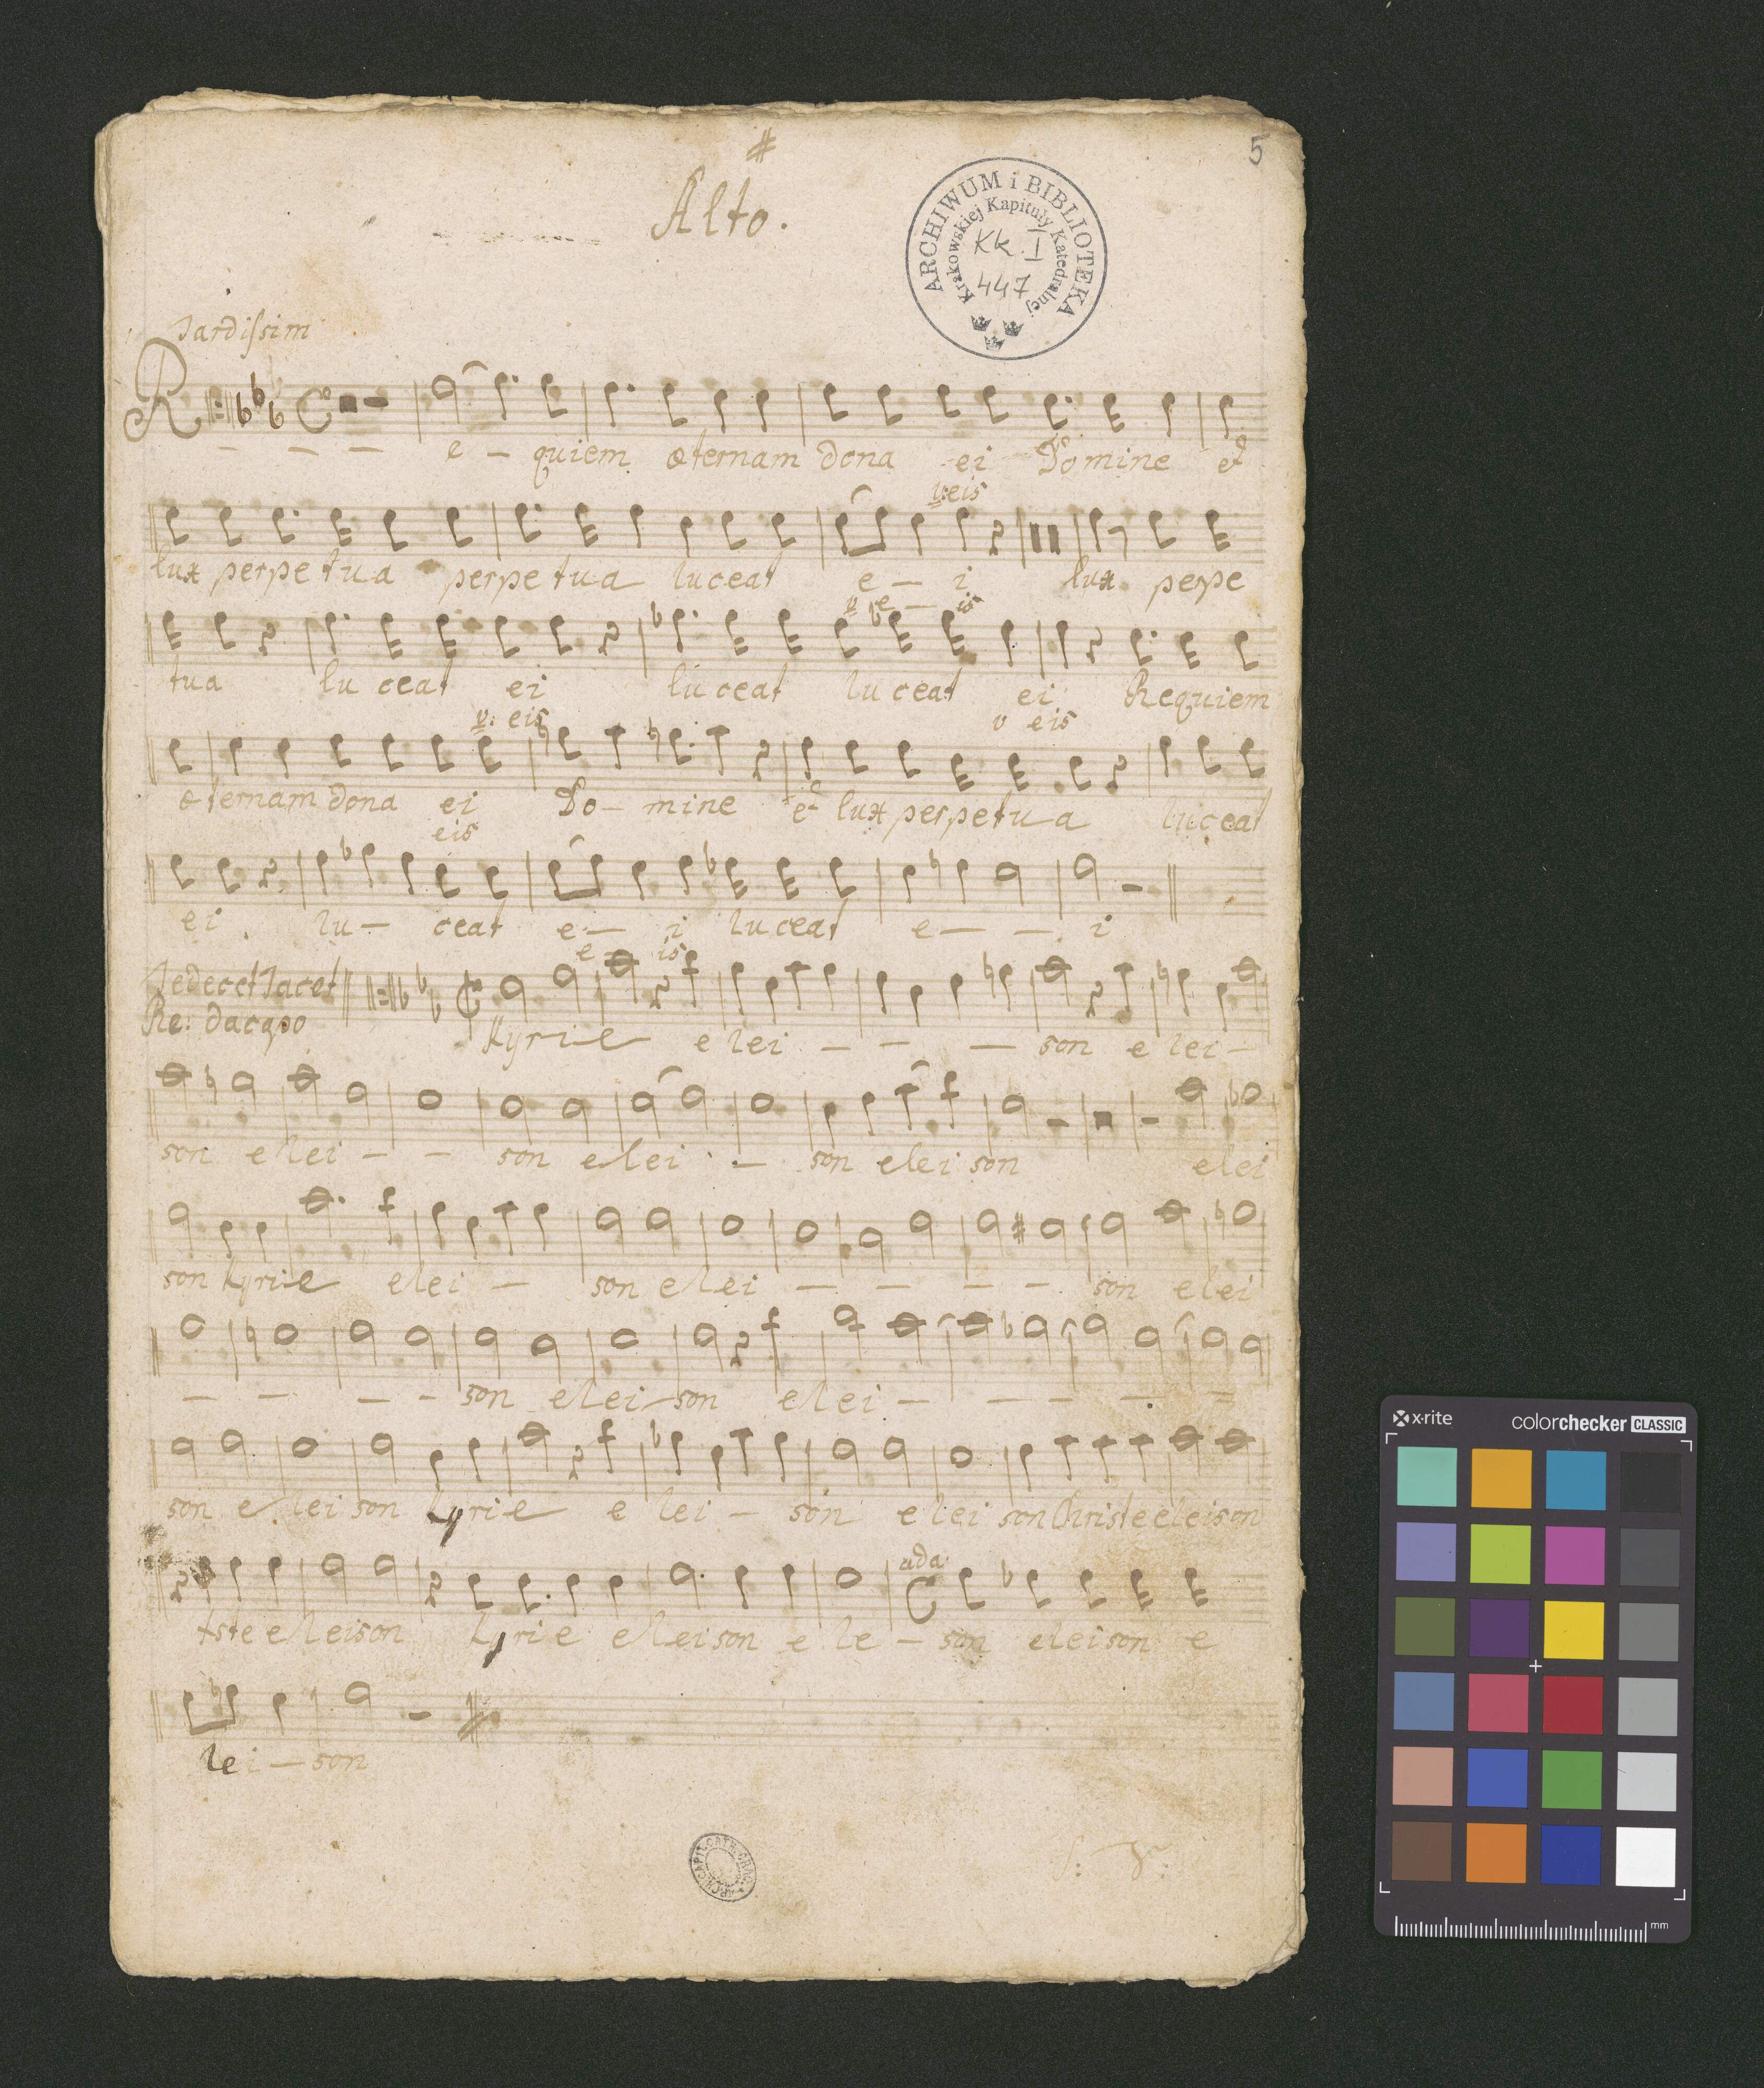 5
Alto.
ARCHIWUM i BIBLIOTEKA
Krakowskiej Kapituły Katedralnej
KK. I
447
Tardissim
R e - quiem æternam dona ei Domine et
v: eis
lux perpetua perpetua luceat e - i lux perpe
v e - is
tua luceat ei luceat luceat ei Requiem
v: eis v eis
æternam dona ei Do - mine et lux perpetua luceat
eis
ei lu - ceat e - i luceat e - - i
e - is
Te decet Tacet
Re: da capo
Kyrie elei - - - son elei -
son elei - - son elei - son eleison elei
son Kyrie elei - son elei - - - - son elei
- - - - son elei - son elei - - - - =
son eleison Kyrie e lei - son eleison Christe eleison
uda
xste eleison Kyrie eleison e le - son eleison e
lei - son
x-rite
colorchecker CLASSIC
mm